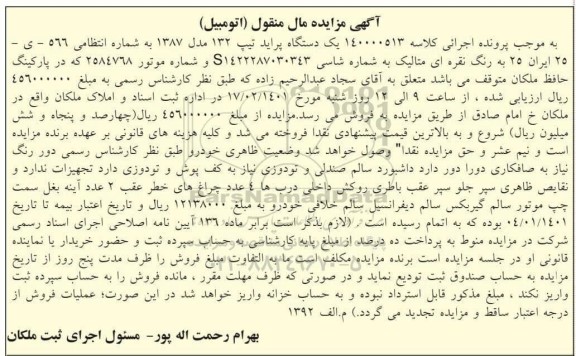 آگهی مزایده مال منقول (اتومبیل)
به موجب پرونده اجرائی کلاسه ۱۴۰۰۰۰۵۱۳ یک دستگاه پراید تیپ ۱۳۲ مدل ۱۳۸۷ به شماره انتظامی ۵۶۶ - ی -
۲۵ ایران ۲۵ به رنگ نقره ای متالیک به شماره شاسی S۱۴۲۲۲۸۷۰۳۰۳۴۳ و شماره موتور ۲۵۸۴۷۶۸ که در پارکینگ
حافظ ملکان متوقف می باشد متعلق به آقای سجاد عبدالرحیم زاده که طبق نظر کارشناس رسمی به مبلغ ۴۵۶۰۰۰۰۰۰
ریال ارزیابی شده ، از ساعت ۹ الی ۱۲ روز شنبه مورخ ۱۷/۰۲/۱۴۰۱ در اداره ثبت اسناد و املاک ملکان واقع در
ملکان خ امام صادق از طریق مزایده به فروش می رسد.مزایده از مبلغ ۴۵۶۰۰۰۰۰۰ ریال(چهارصد و پنجاه و شش
میلیون ریال) شروع و به بالاترین قیمت پیشنهادی نقدا فروخته می شد و کلیه هزینه های قانونی بر عهده برنده مزایده
است و نیم عشر و حق مزایده نقدا" وصول خواهد شد وضعیت ظاهری خودرو طبق نظر کارشناس رسمی دور رنگ
نیاز به صافکاری دورا دور دارد داشبورد سالم صندلی و تودوزی نیاز به کف پوش و تودوزی دارد تجهیزات ندارد و
نقایص ظاهری سپر جلو سپر عقب باطری روکش داخلی درب ها ٤ عدد چراغ های خطر عقب ۲ عدد آینه بغل سمت
چپ موتور سالم گیربکس سالم دیفرانسیل سالم خلافی خودرو به مبلغ ۱۲۱۳۸۰۰۰ ریال و تاریخ اعتبار بیمه تا تاریخ
۰۴/۰۱/۱۴۰۱ بوده که به اتمام رسیده است . الازم بذکر است برابر ماده ۱۳۶ آیین نامه اصلاحی اجرای اسناد رسمی
شرکت در مزایده منوط به پرداخت ده درصد از مبلغ پایه کارشناسی به حساب سپرده ثبت و حضور خریدار یا نماینده
قانونی او در جلسه مزایده است برنده مزایده مکلف است ما به التفاوت مبلغ فروش را ظرف مدت پنج روز از تاریخ
مزایده به حساب صندوق ثبت تودیع نماید و در صورتی که ظرف مهلت مقرر ، مانده فروش را به حساب سپرده ثبت
واریز نکند ، مبلغ مذکور قابل استرداد نبوده و به حساب خزانه واریز خواهد شد در این صورت؛ عملیات فروش از
درجه اعتبار ساقط و مزایده تجدید می گردد.) م.الف ۱۳۹۲
بهرام رحمت اله پور- مسئول اجرای ثبت ملکان